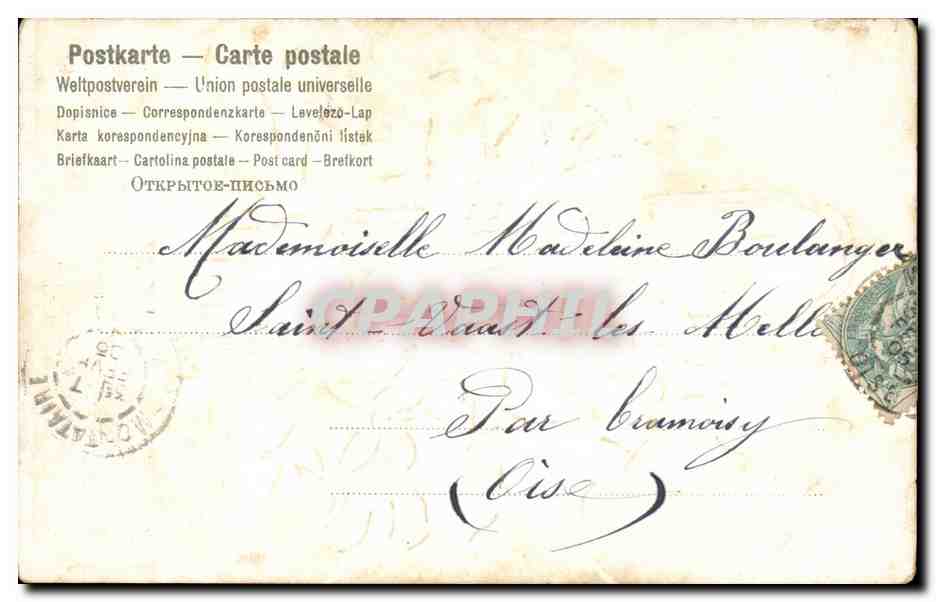 Postkarte — Carte postale
Weltpostverein — Union postale universelle
Dopisnice — Correspondenzkarte — Levelező-Lap
Karta korespondencyjna — Korespondenčni listek
Briefkaart — Cartolina postale — Post card — Brefkort
Открытое-письмо
Mademoiselle Madeleine Boulanger
Saint-Vaast-les Melle
Par Cramoisy
(Oise)
MONTATAIRE